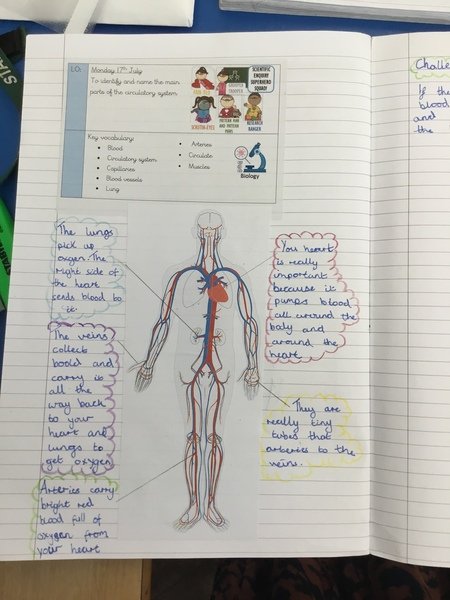 L.O:
Monday 17th July
To identify and name the main
parts of the circulatory system
SCIENTIFIC
ENQUIRY
SUPERHERO
SQUAD!
GROUPER
TROOPER
SCRUTIN-EYES
PATTERN PAM
AND PATTERN
PARIS
RESEARCH
RANGER
Key vocabulary:
Blood
Circulatory system
Capillaries
Blood vessels
Lung
Arteries
Circulate
Muscles
Biology
The lungs
pick up
oxgen. The
right side of
the heart
sends blood to
it.
The veins
collect
boold and
carry it
all the
way back
to your
heart and
lungs to
get oxygen
Arteries carry
bright red
blood full of
oxygen from
your heart
You heart
is really
important
because it
pumps blood
all around the
body and
around the
heart
They are
really tiny
tubes that
arteries to the
veins.
Challe
If the
blood
and
the
STA